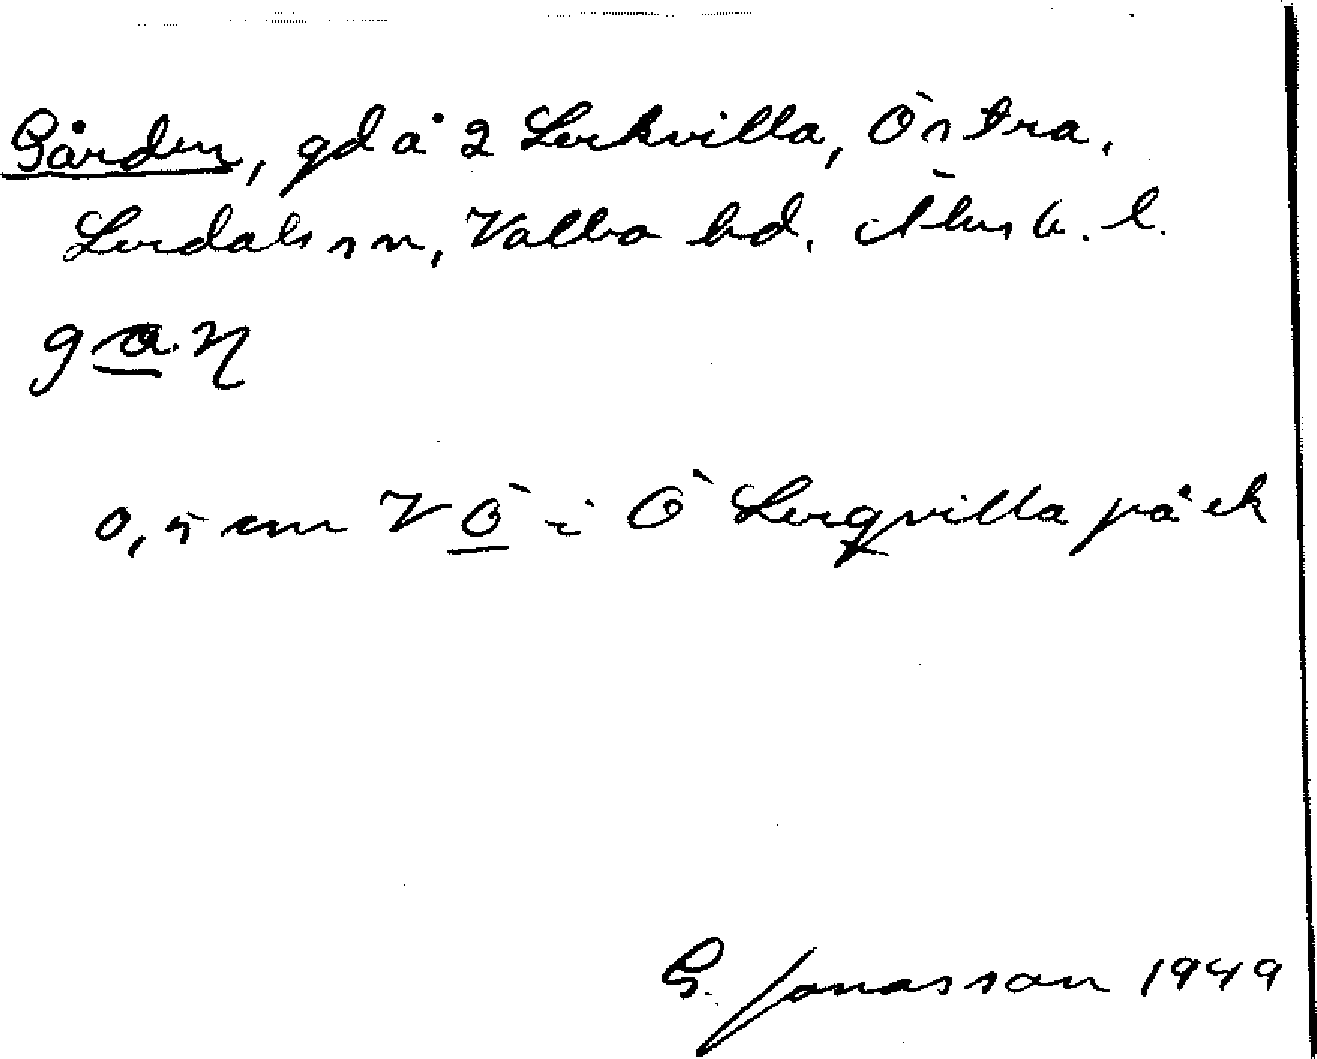 Gården, gd å 2 Lerkvilla, Östra,
Lerdals sn, Valbo hd. Älvsb. l.
ga.ɳ
0,5 cm V Ö i Ö Lerqvilla på ek
G. Jonasson 1949